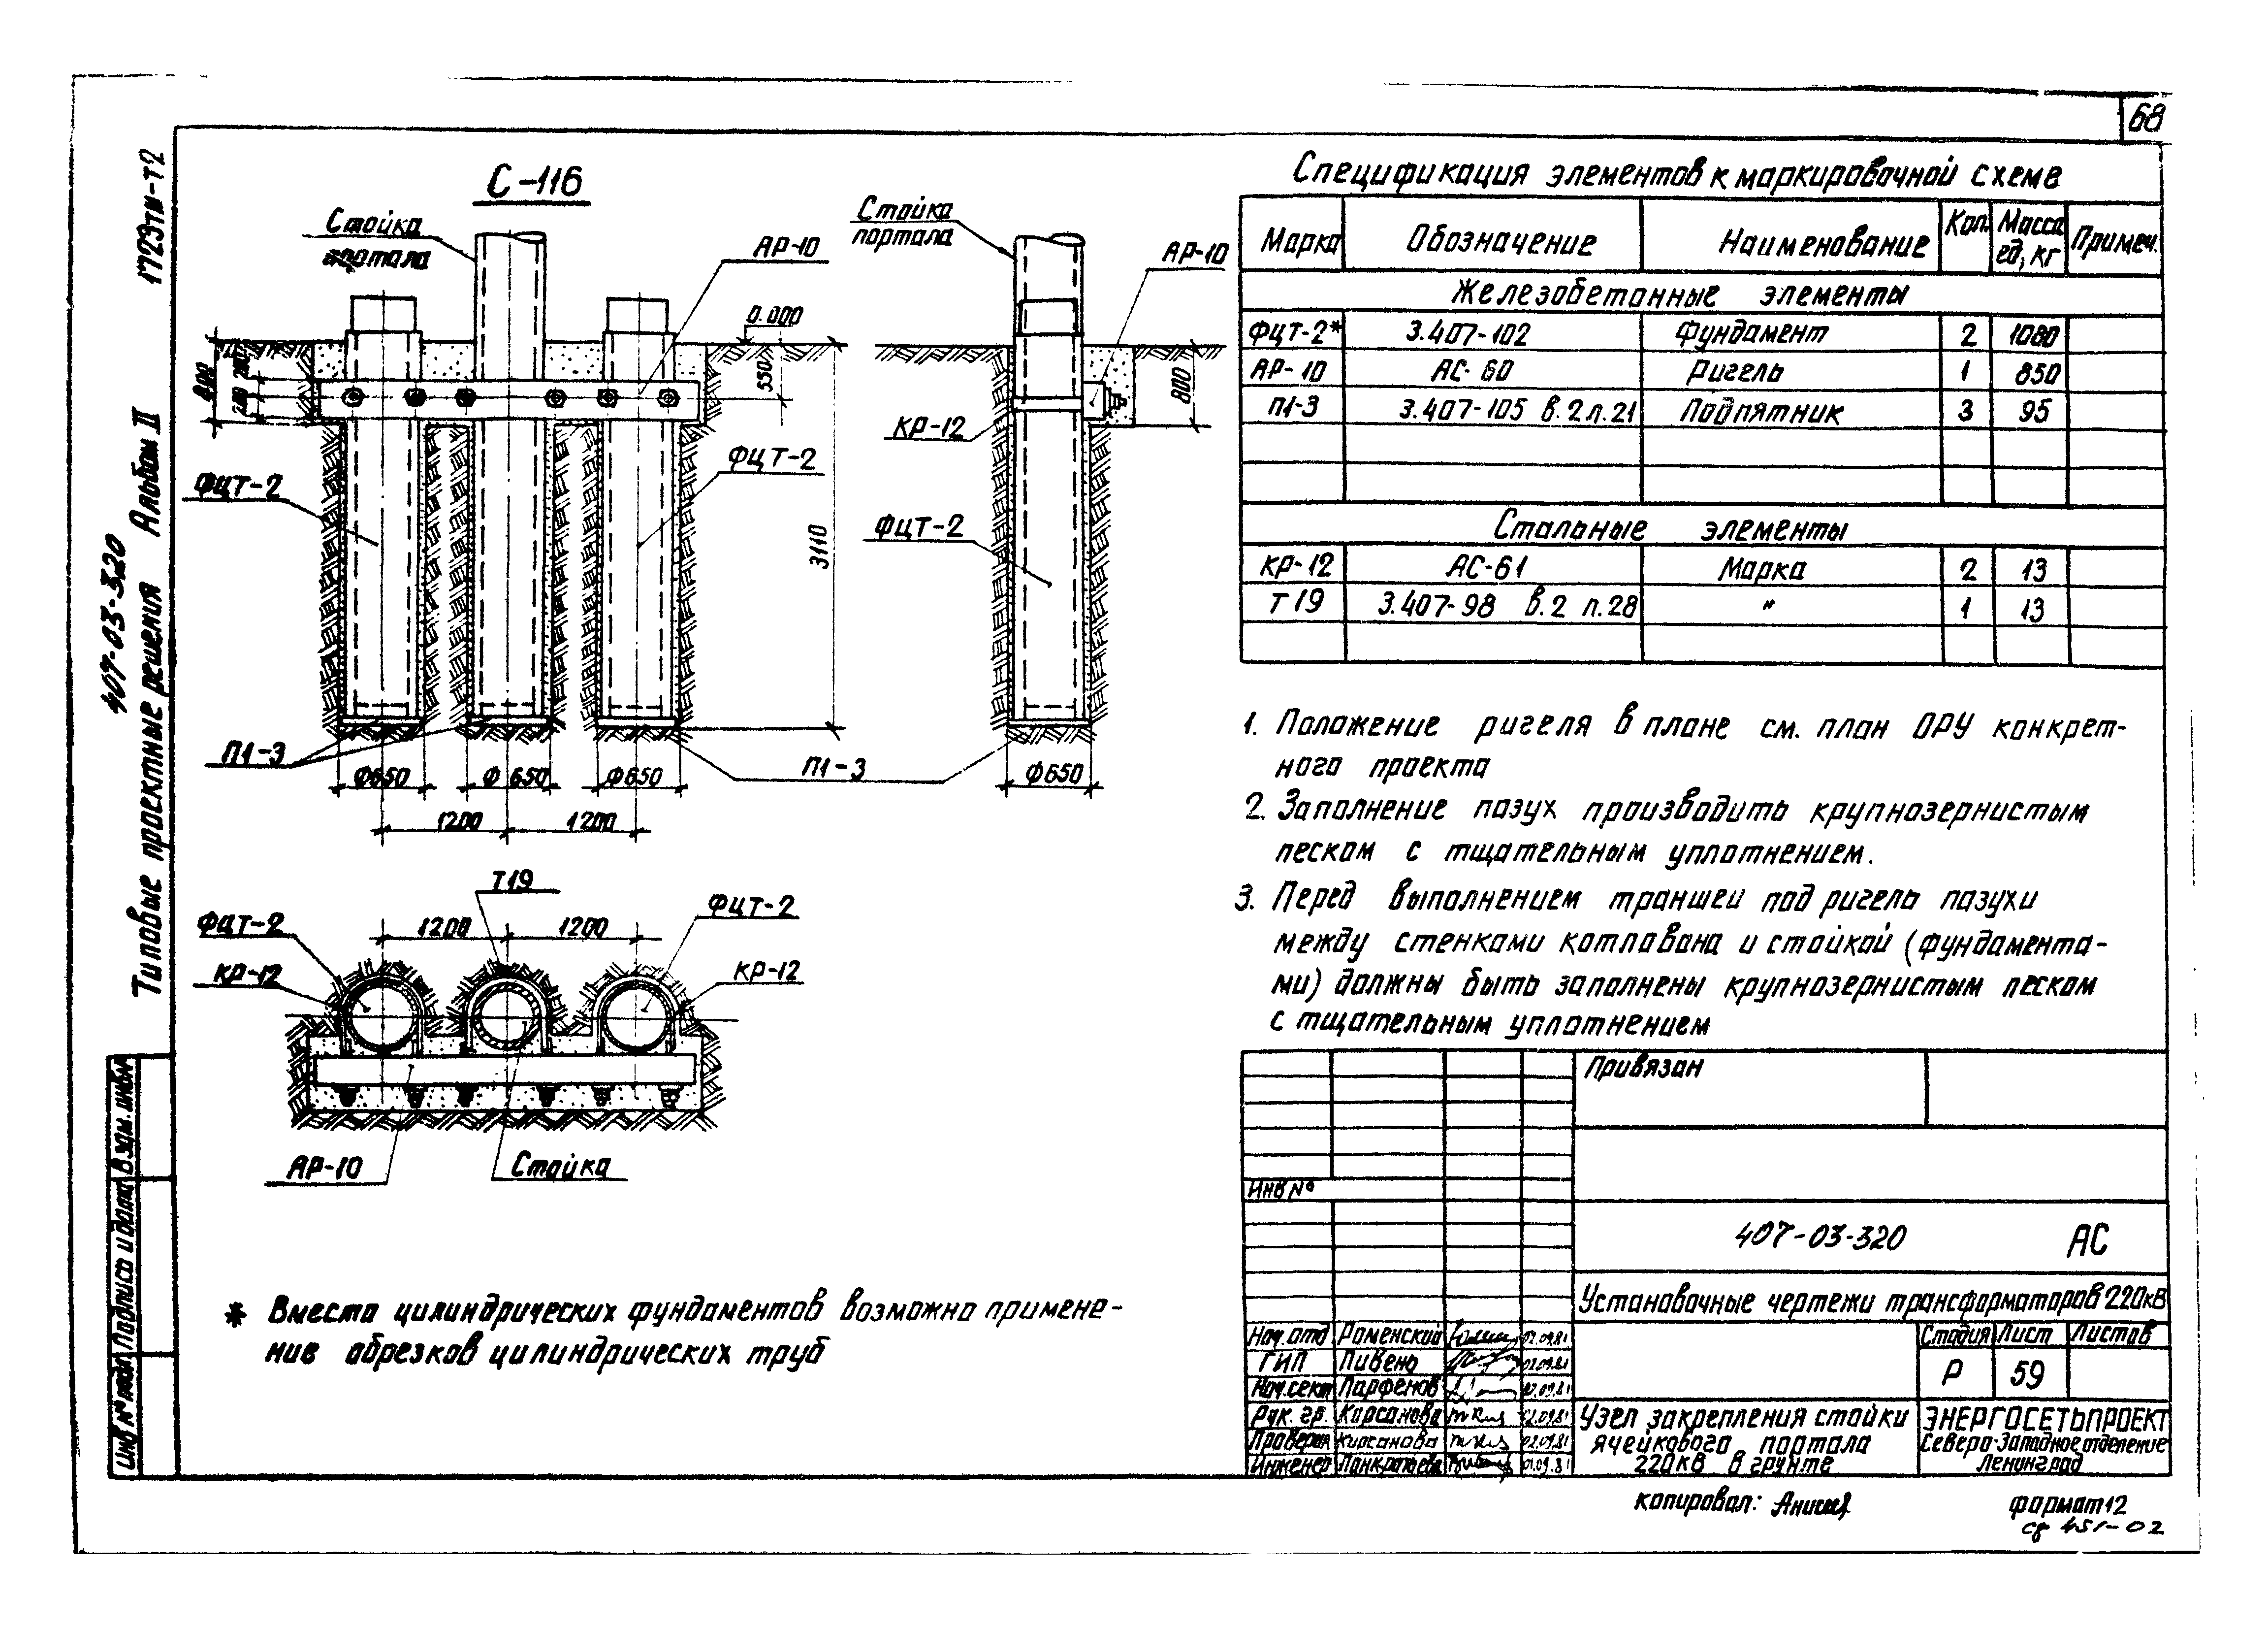 68
1723тм-т2
407-03-320
Типовые проектные решения Альбом II
С-116
Стойка
портала
АР-10
0.000
400
200
200
550
3110
ФЦТ-2
ФЦТ-2
П1-3
П1-3
Ф650
Ф 650
Ф650
1200
1200
Стойка
портала
АР-10
КР-12
800
ФЦТ-2
Ф650
Т19
ФЦТ-2
ФЦТ-2
1200
1200
КР-12
КР-12
АР-10
Стойка
* Вместо цилиндрических фундаментов возможно примене-
ние обрезков цилиндрических труб
Спецификация элементов к маркировочной схеме
Марка Обозначение Наименование Кол. Масса ед, кг Примеч.
Железобетонные элементы
ФЦТ-2* 3.407-102 Фундамент 2 1080
АР-10 АС-60 Ригель 1 850
П1-3 3.407-105 в.2 л.21 Подпятник 3 95
Стальные элементы
КР-12 АС-61 Марка 2 13
Т19 3.407-98 в.2 л.28 " 1 13
1. Положение ригеля в плане см. план ОРУ конкрет-
ного проекта
2. Заполнение пазух производить крупнозернистым
песком с тщательным уплотнением.
3. Перед выполнением траншеи под ригель пазухи
между стенками котлована и стойкой (фундамента-
ми) должны быть заполнены крупнозернистым песком
с тщательным уплотнением
Привязан
Инв №
407-03-320 АС
Установочные чертежи трансформаторов 220кв
Нач.отд Роменский 02.09.81
ГИП Пивень 02.09.81
Нач.сект Парфенов 02.09.81
Рук. гр. Кирсанова 02.09.81
Проверил Кирсанова 02.09.81
Инженер Панкратьева 01.09.81
Стадия Лист Листов
Р 59
Узел закрепления стойки
ячейкового портала
220кв в грунте
ЭНЕРГОСЕТЬПРОЕКТ
Северо-Западное отделение
Ленинград
Инв № подл Подпись и дата Взам. инв №
копировал:
формат 12
сф 451-02